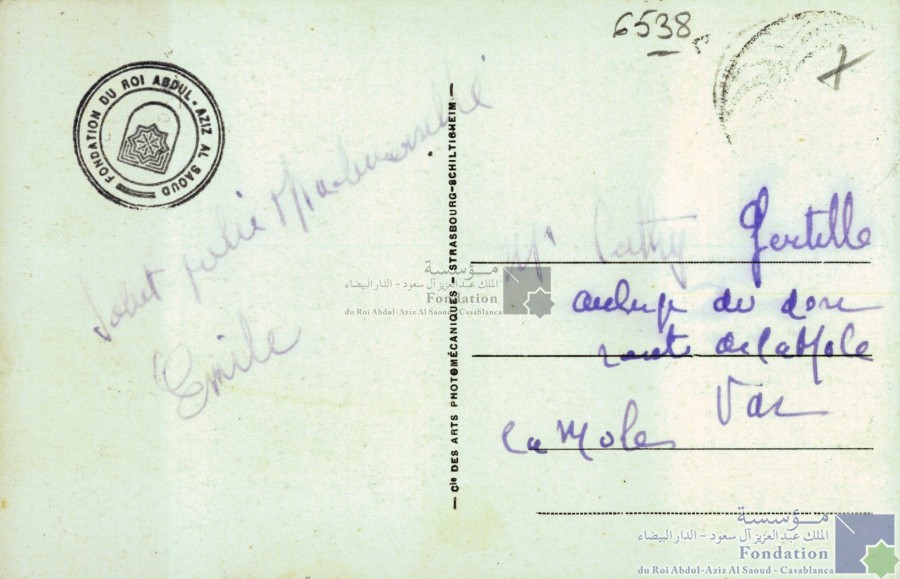 6538
FONDATION DU ROI ABDUL-AZIZ AL SAOUD
jolie
Emile
Cie DES ARTS PHOTOMÉCANIQUES - STRASBOURG-SCHILTIGHEIM
Cathy
du
route de la Mole
Var
La Mole
مؤسسة
الملك عبد العزيز آل سعود - الدار البيضاء
Fondation
du Roi Abdul-Aziz Al Saoud - Casablanca
مؤسسة
الملك عبد العزيز آل سعود - الدار البيضاء
Fondation
du Roi Abdul-Aziz Al Saoud - Casablanca